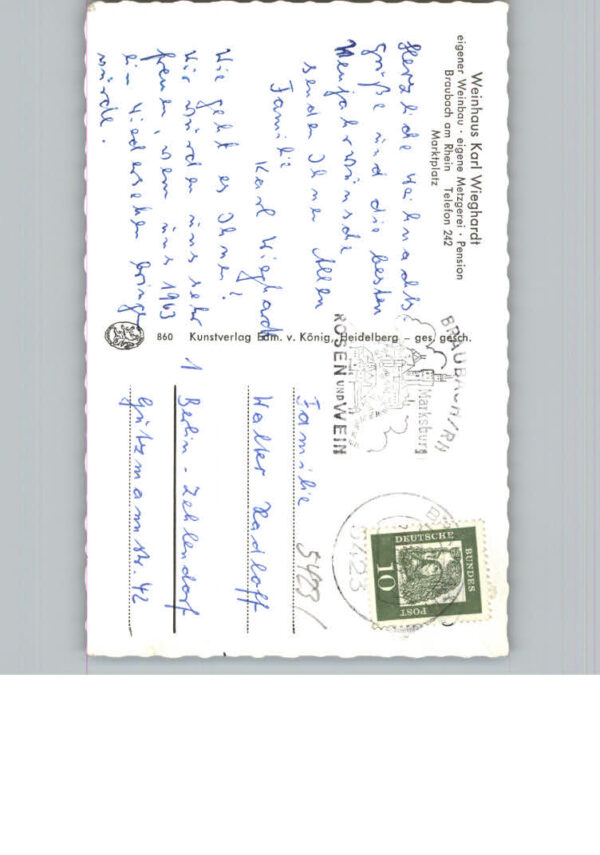 Weinhaus Karl Wieghardt
eigener Weinbau · eigene Metzgerei · Pension
Braubach am Rhein Telefon 242
Marktplatz
Herzliche Weihnachts
grüße und die besten
Neujahrwünsche
senden Ihnen Allen
Familie
Karl Wieghardt
Wie geht es Ihnen?
Wir würden uns sehr
freuen, wenn uns 1963
ein Wiedersehen bringen
würde.
860 Kunstverlag Edm. v. König, Heidelberg – ges. gesch.
BRAUBACH/RH
Marksburg
ROSEN UND WEIN
5423
DEUTSCHE BUNDES
POST
10
Familie
5423/
Walter Radloff
1 Berlin-Zehlendorf
Gützmannstr. 42